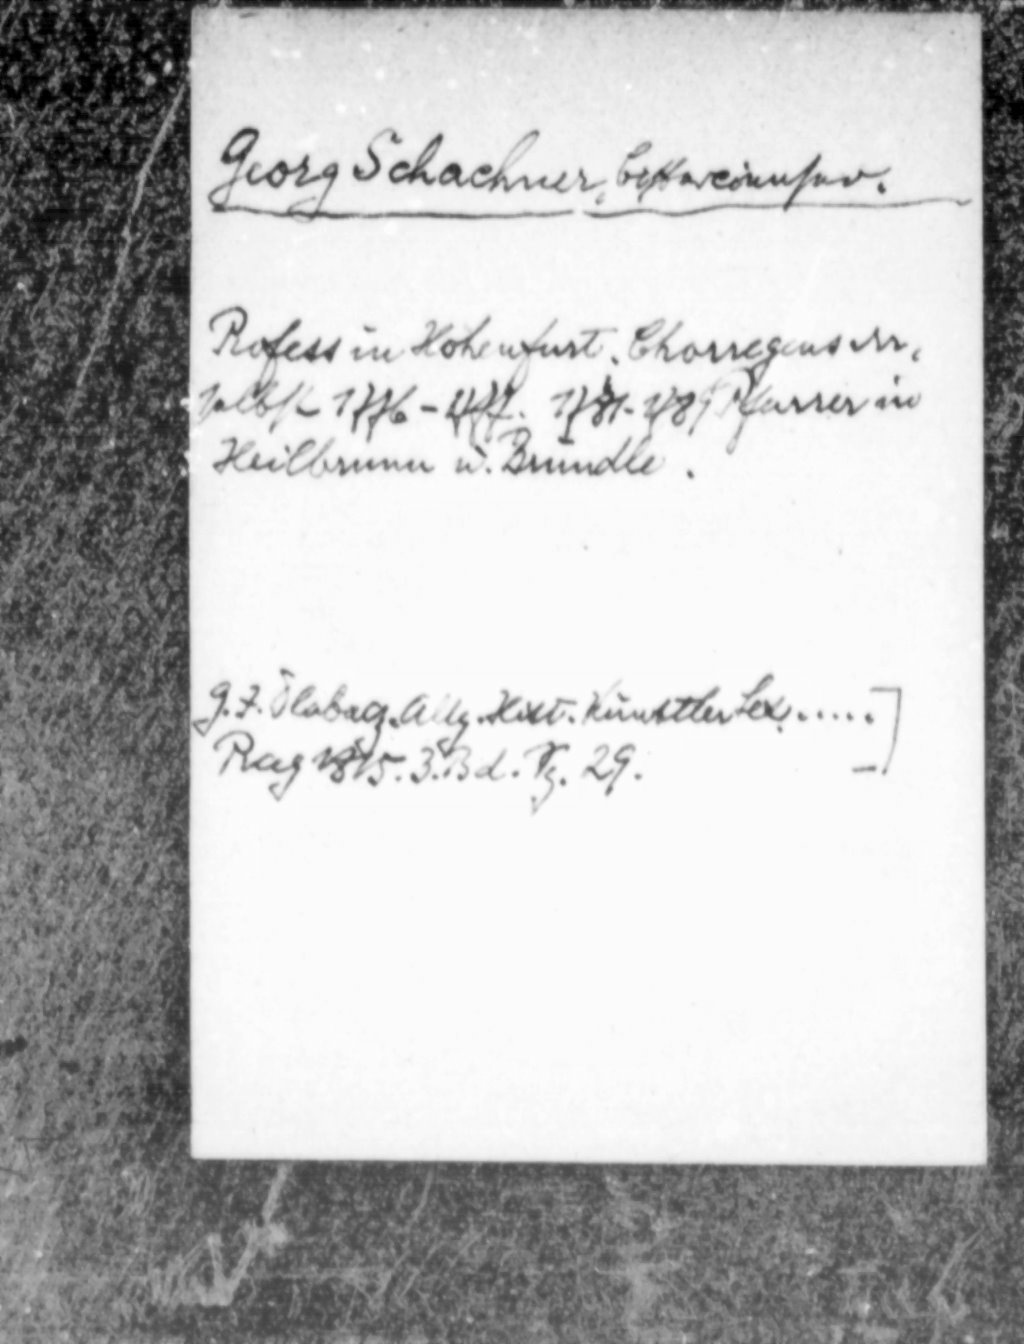 Georg Schachner, Cisterciensser.
Profess in Hohenfurt. Chorregens da,
selbst 1776-1777. 1781-1789 Pfarrer in
Heilbrunn u. Bründle.
G. J. Dlabacz. Allg. Hist. Künstler Lex.....]
Prag 1815. 3. Bd. Pg. 29.